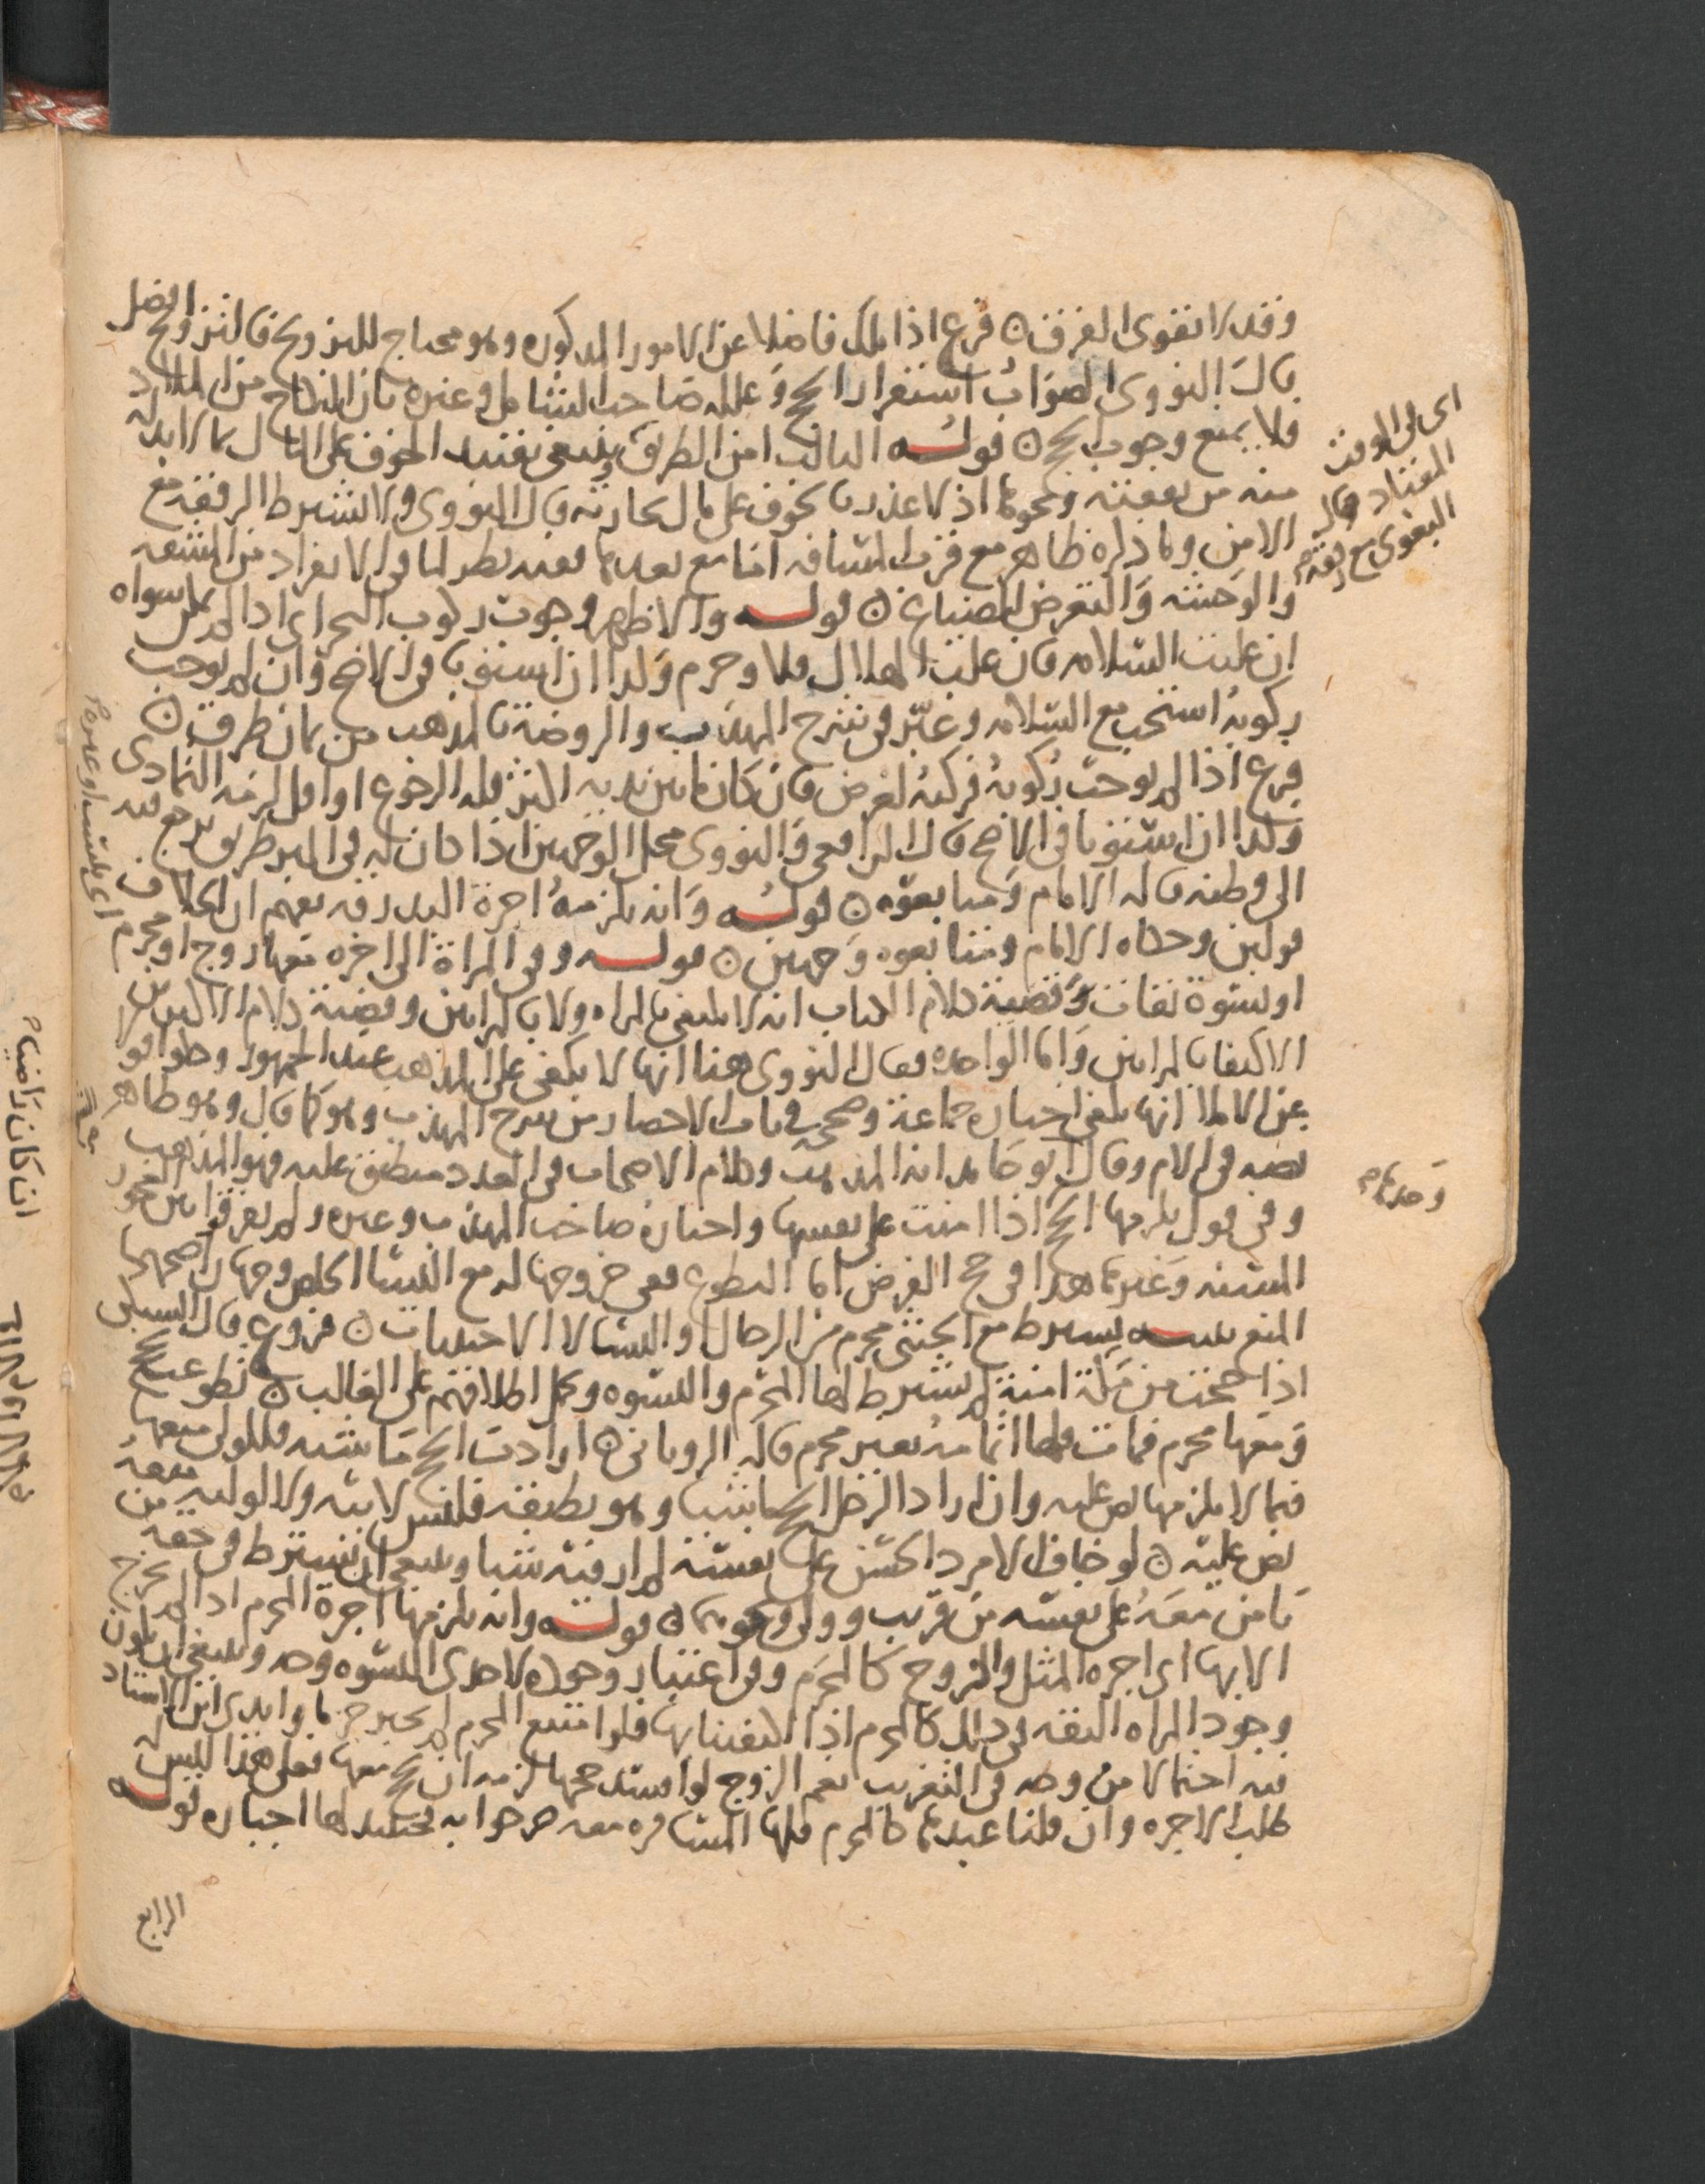 وقد لا تقوى الفرق ۞ فرع اذا ملك فاضلا عن الامور المذكوره وهو محتاج للتزويج فالتزويج افضل
قال النووى الصواب استقرار الحج وعلله صاحب الشامل وغيره بان النكاح من الملاد
ولا يمنع وجوب الحج ۞ قوله الثالث امن الطريق ينبغى تقييد الخوف على المال بما لا بد له
منه من نفقته ونحوها اذ لا عذر بالخوف على مال تجارته قال النووى ولا نشترط الرفقه مع
الامن وما ذكره ظاهر مع قرب المسافه اما مع بعدها فعنه نظر لما فى الانفراد من المشقه
والوحشه والتعرض للضياع ۞ قوله والاظهر وجوب ركوب البحر اى اذا لم يكن سواه
ان غلبت السلامه فان غلب الهلاك فلا وحرم وكذا ان استويا فى الاصح وان لم يوجب
ركوبه استحب مع السلامه وعبر فى شرح المهذب والروضة بالمذهب من ثمان طرق ۞
فرع اذا لم يوجب ركوبه فركبه لغرض فان كان ما بين يديه اكثر فله الرجوع او اقل لزمه التمادى
وكذا ان استويا فى الاصح قال الرافعى والنووى محل الوجهين اذا كان له فى البر طريق يرجع منه
الى وطنه قاله الامام ومتابعوه ۞ قوله وانه يلزمه اجرة البدرقه يفهم ان الخلاف
قولين وحكاه الامام ومتابعوه وجهين ۞ قوله وفى المراة الى اخره معها زوج او محرم
او نسوة ثقات وقضية كلام الكتاب انه لا يكتفى بامراه ولا بامراتين وقضية كلام الاكثرين
الاكتفا بامراتين واما الواحده فقال النووى هنا انها لا يكفى على المذهب عند الجمهور
عن الاملا انها يكفى اختاره جماعة وصححه فى باب الاحصار من شرح المهذب وهو كما قال وهو ظاهر
نصه فى الام وقال ابو حامد انه المذهب وكلام الاصحاب فى العدد منطبق عليه فهو المذهب
وفى قول يلزمها الحج اذا امنت على نفسها واختاره صاحب المهذب وغيره ولم يفرقوا بين العجوز
المسنه وغيرها هذا فى حج الفرض اما التطوع ففى خروجها له مع النسا الخلص وجهان اصحهما
المنع تنبيه يشترط مع الخنثى محرم من الرجال او النسا لا الاجنبيات ۞ فروع قال السبكى
اذا حجت من مكة امنة لم يشترط لها المحرم والنسوه وحمل اطلاقهم على الغالب ۞ تطوعت بحج
ومعها محرم فمات فلها اتمامه بغير محرم قاله الرويانى ۞ ارادت الحج ماشيه فللولى منعها
فيما لا يلزمها نص عليه وان اراد الرجل الحج ماشيا وهو يطيقه فليس لابيه ولا لوليه منعه
نص عليه ۞ لو خاف الامرد الحسن على نفسه لم ار فيه شيا وينبغى ان يشترط فى حقه من
يامن معه على نفسه من قريب وولى ونحوهما ۞ قوله وانه يلزمها اجرة المحرم اذا لم يخرج
الا بها اى اجرة المثل والزوج كالمحرم وفى اعتبار وجود لاحدى النسوه وجه وينبغى ان يكون
وجود المراه الثقه فى ذلك كالمحرم اذا اكتفينا بها فلو امتنع المحرم لم يجبر جزما وابدى ابن الاستاد
فيه احتمالا من وجه فى التغريب نعم الزوج لو افسد حجها لزمه ان يحج معها فعلى هذا ليس له
طلب الاجره وان قلنا عبدها كالمحرم فلها المسافره معه صرحوا به فحينئذ لها اجباره قوله
الرابع
اى فى الوقت
المعتاد قاله
البغوى مع رفقه